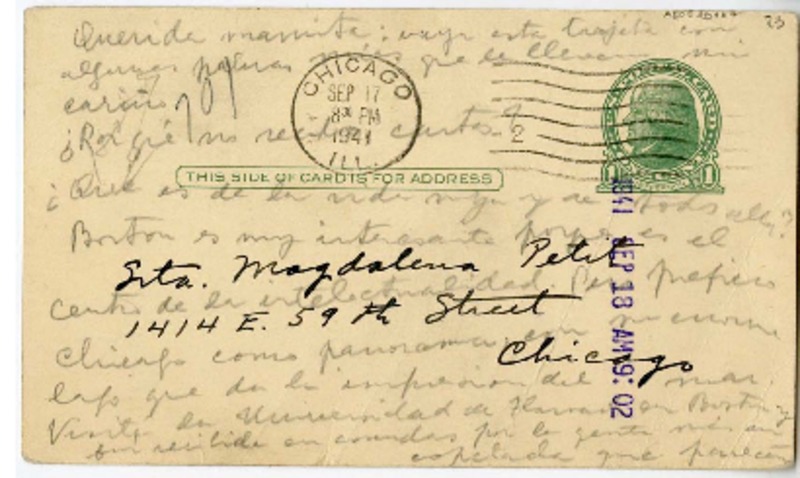 23
Querida mamita: vaya esta tarjeta con
algunas palabras más que le lleven mi
cariño
CHICAGO
SEP 17
8 PM
1941
ILL.
¿Porqué no recibo cartas?
2
THIS SIDE OF CARD IS FOR ADDRESS
¿Que es de la vida suya y de todos allá?
Boston es muy interesante porque es el
Srta. Magdalena Petit
centro de la intelectualidad Pero prefiero
1414 E. 59 th Street
Chicago como panorama con su enorme
Chicago
lago que da la impresión del mar.
Visité la Universidad de Harvard en Boston y
fui recibida en comidas por la gente más en
copetada que parecen
1941 SEP 18 AM 9:02